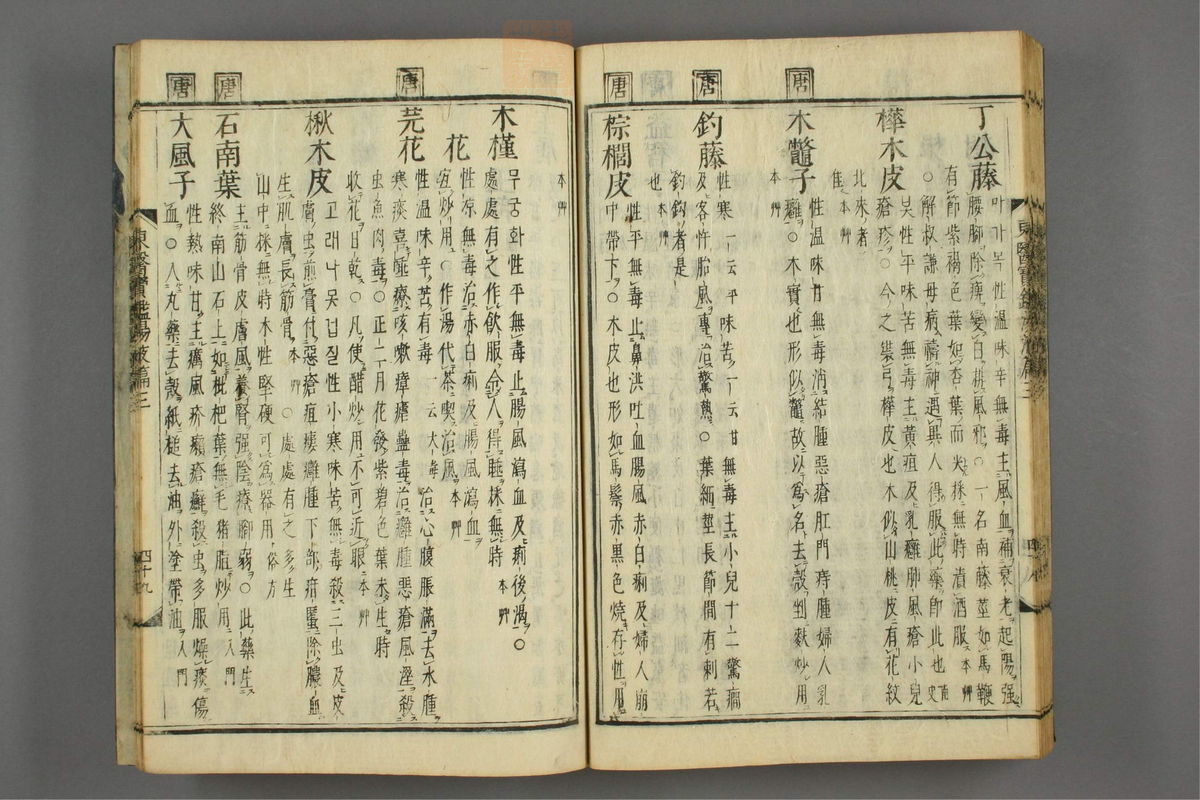 丁公藤 마가목 性溫味辛無毒主風血補衰老起陽强
腰脚除痺變白排風邪○一名南藤莖如馬鞭
有節紫褐色葉如杏葉而尖採無時漬酒服 本艸
○解叔謙母病禱神遇異人得服此藥卽此也 南史
樺木皮 봇 性平味苦無毒主黃疸及乳癰肺風瘡小兒
瘡疹○今之裝弓樺皮也木似山桃皮有花紋
北來者
佳 本艸
唐
木鼈子 性溫味甘無毒消結腫惡瘡肛門痔腫婦人乳
癰○木實也形似鼈故以爲名去殼剉麩炒用
本艸
唐
釣藤 性寒一云平味苦一云甘無毒主小兒十二驚癎
及客忤胎風專治驚熱○葉細莖長節間有刺若
釣鉤者是
也 本艸
唐
棕櫚皮 性平無毒止鼻洪吐血腸風赤白痢及婦人崩
中帶下○木皮也形如馬鬃赤黑色燒存性用
本艸
木槿 무궁화 性平無毒止腸風瀉血及痢後渴○
處處有之作飮服令人得睡採無時 本艸
花 性凉無毒治赤白痢及腸風瀉血
宜炒用○作湯代茶喫治風 本艸
唐
芫花 性溫味辛苦有毒一云大毒治心腹脹滿去水腫
寒痰喜唾療咳嗽瘴瘧蠱毒治癰腫惡瘡風濕殺
虫魚肉毒○正二月花發紫碧色葉未生時
收花日乾○凡使醋炒用不可近眼 本艸
楸木皮 고래나모겁질 性小寒味苦無毒殺三虫及皮
膚虫煎膏付惡瘡疽瘻癰腫下部疳䘌除膿血
生肌膚長筋骨 本艸 ○處處有之多生
山中採無時木性堅硬可爲器用 俗方
唐
石南葉 主筋骨皮膚風養腎强陰療脚弱○此藥生
終南山石上如枇杷葉無毛猪脂炒用 入門
唐
大風子 性熱味甘主癘風疥癩瘡癬殺虫多服燥痰傷
血○入丸藥去殼紙槌去油外塗帶油 入門
東醫寶鑑湯液篇三
四十九